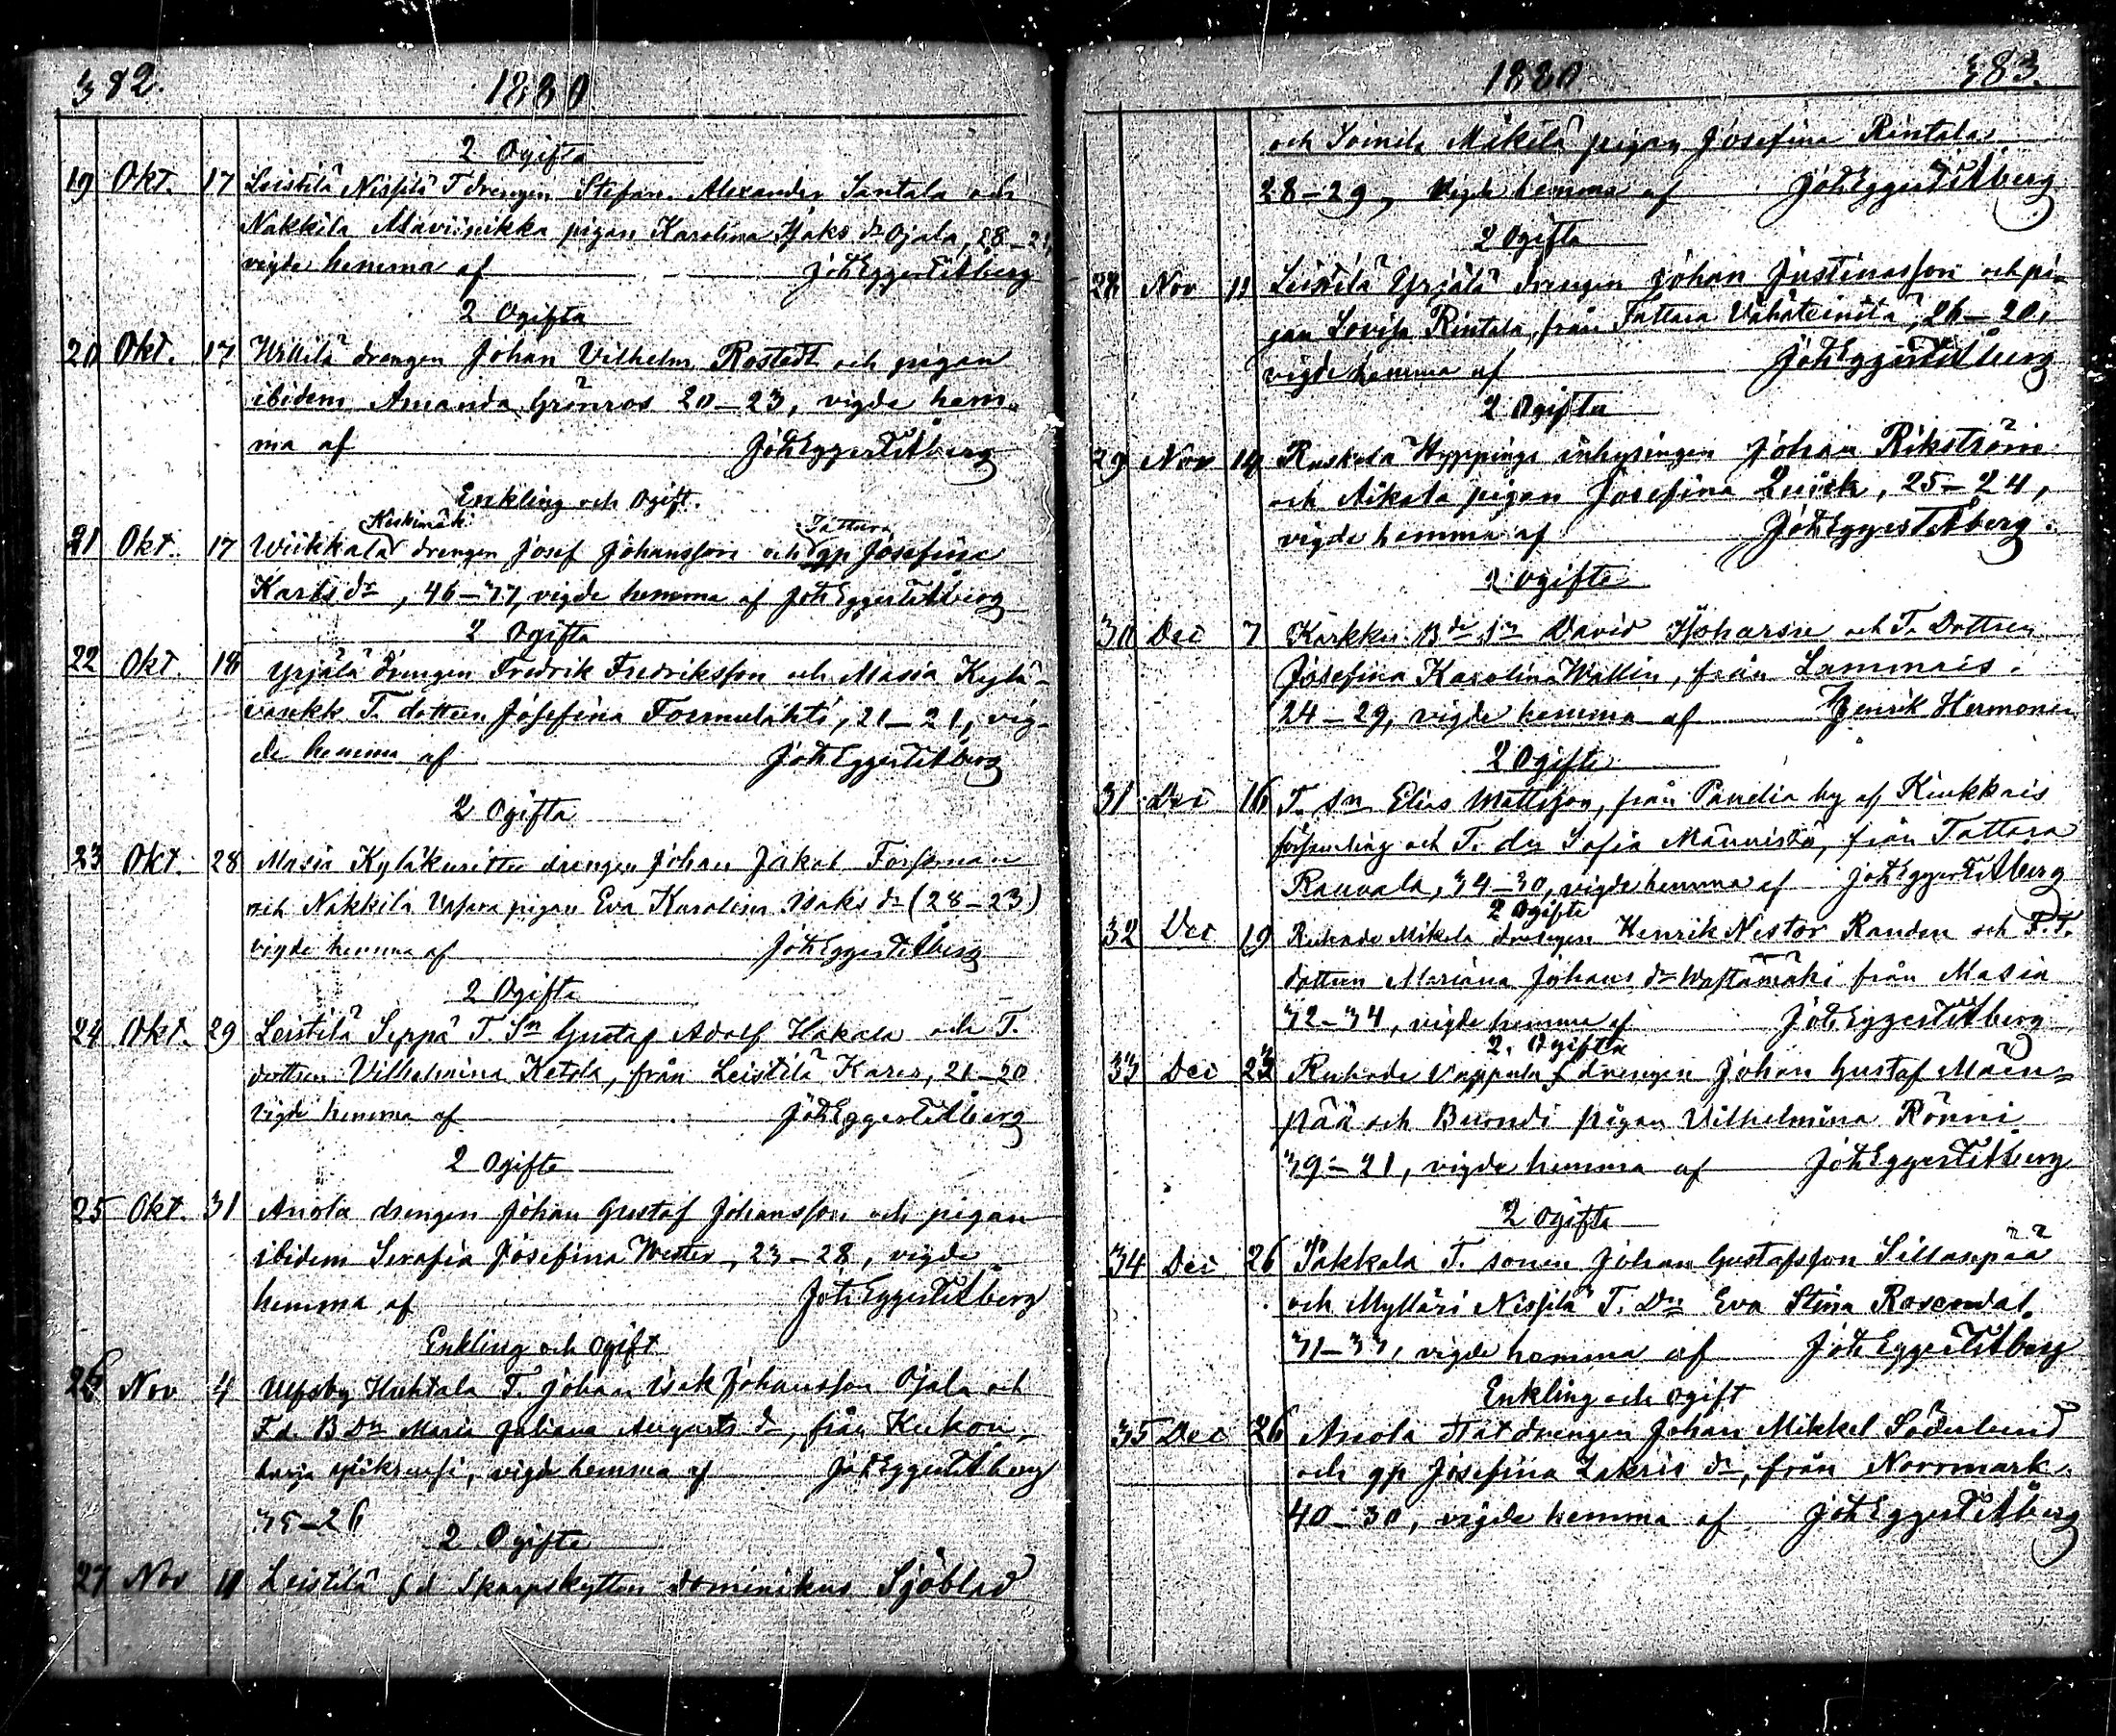 382.
1880
2 Ogifta
19 Okt. 17 Leistilä Nissilä T drengen Stefan Alexander Santala och
Nakkila pigan Karolina Isaks dr Ojala, 28–21,
vigde hemma af Joh Eggert Åberg
2 Ogifta
20 Okt. 17 drengen Johan Vilhelm Rostedt och pigan
ibidem Amanda Grönros 20–23, vigde hem-
ma af Joh Eggert Åberg
Enkling och Ogift.
Keskimäk Tattara
21 Okt. 17 Wiikkala drengen Josef Johansson och gp Josefina
Karls dr, 46–37, vigde hemma af Joh Eggert Åberg
2 Ogifta
22 Okt. 18 Yrjälä drengen Fredrik Fredriksson och Masia Kylä-
T. dottern Josefina Formulahti, 21–21, vig-
de hemma af Joh Eggert Åberg
2 Ogifta
23 Okt. 28 Masia drengen Johan Jakob Forsman
och Nakkila pigan Eva Karolina Isaks dr (28–23)
vigde hemma af Joh Eggert Åberg
2 Ogifta
24 Okt. 29 Leistilä Seppä T. Sn Gustaf Adolf Hakala och T.
dottern Vilhelmina Ketola, från Leistilä Kares, 21–20
vigde hemma af Joh Eggert Åberg
2 Ogifte
25 Okt. 31 Anola drengen Johan Gustaf Johansson och pigan
ibidem Serafia Josefina Wester, 23–28, vigde
hemma af Joh Eggert Åberg
Enkling och Ogift
26 Nov 4 Ulfsby Huhtala T. Johan Isak Johansson Ojala och
Fd. B Dr Maria Juliana Augusts dr, från
vigde hemma af Joh Eggert Åberg
35–26
2 Ogifte
27 Nov 11 Leistilä fd Skarpskytten Dominikus Sjöblad
1880 383.
och Soinila Mikilä pigan Josefina Rintala
28–29, Vigde hemma af Joh Eggert Åberg
2 Ogifta
28 Nov 11 Leistilä Yrjälä drengen Johan Justinasson och pi-
gan Lovisa Rintala, från Tattara Vähäteinilä, 26–20,
vigde hemma af Joh Eggert Åberg
2 Ogifta
29 Nov 14 Ruskela Hyppingi inhysingen Johan Rikström
och Aikala pigan Josefina Qvick, 25–24,
vigde hemma af Joh Eggert Åberg.
2 ogifte
30 Dec 7 B de sn David och T. Dottren
Josefina Karolina Wallin, från Lammais.
24–29, vigde hemma af Henrik Hermonen
2 Ogifte
31 Dec 16 T. sn Elias Mattsson, från Panelia by af Kiukkais
församling och T. dn Sofia Männistö, från Tattara
Rauvala, 34–30, vigde hemma af Joh Eggert Åberg
2 Ogifte
32 Dec 19 Ruhade Mikola drengen Henrik Nestor Randen och F. T.
dottern Mariana Johans dr Wastamäki från Masia
32–34, vigde hemma af Joh Eggert Åberg
2. Ogifta
33 Dec 23 Ruhade Vappula drengen Johan Gustaf Mäen-
pää och Buondi pigan Vilhelmina Rönni
39–21, vigde hemma af Joh Eggert Åberg
2 Ogifta
34 Dec 26 Pakkala T. sonen Johan Gustafsson Sillanpää
och Mylläri Nissilä T. Dr Eva Stina Rosendal.
31–33, vigde hemma af Joh Eggert Åberg
Enkling och ogift
35 Dec 26 Anola drengen Johan Mikkel Söderlund
och gp Josefina Zakris dr, från Norrmark
40–30, vigde hemma af Joh Eggert Åberg